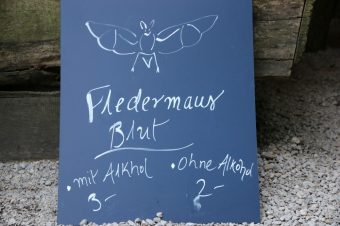 Fledermaus
Blut
• mit Alkhol • Ohne Alkohol
3- 2-